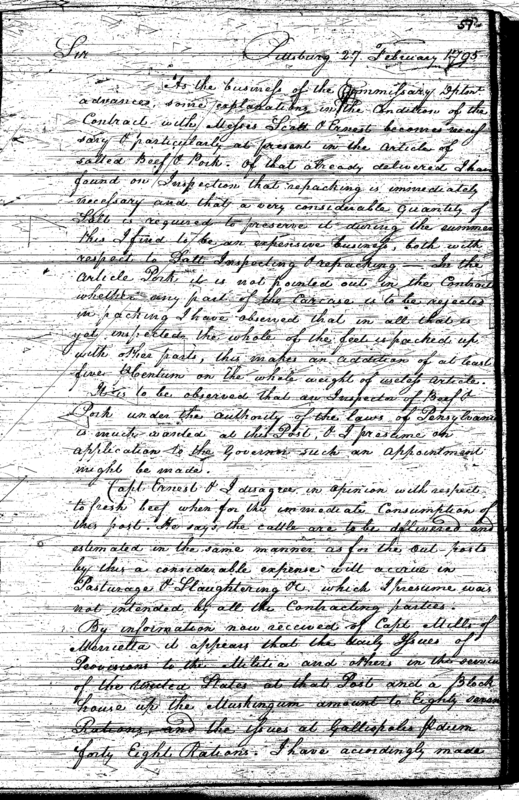 51
Sir Pittsburg 27 February 1795
As the business of the Commissary Dptmt
advances, some explanations in the Condition of the
Contract with Messes Scott & Ernest becomes neces
sary & particularly at present in the Article of
salted Beef & Pork. Of that already delivered I have
found on Inspection that repacking is immediately
necessary and that a very considerable quantity of
Salt is required to preserve it during the summer
this I find to be an expensive business, both with
respect to Salt Inspecting & repacking In the
Article Pork it is not pointed out in the Contract
whether any part of the Carcase is to be rejected
in packing I have observed that in all that is
yet inspected the whole of the feet is packed up
with other parts, this makes an addition of at least
five Centum on the whole weight of useless article.
It is to be observed that an Inspector of Beef &
Pork under the authority of the laws of Pensylvania
is much wanted at this Post, & I presume on
application to the Governor such an appointment
might be made.
Capt Ernest & I disagree in opinion with respect
to fresh beef when for the immediate Consumption of
this post. He says the cattle are to be delivered and
estimated in the same manner as for the Out posts
by this a considerable expense will accrue in
Pasturage & Slaughtering &c, which I presume was
not intended by all the Contracting parties.
By information now received of Capt Mills of
Merrietta it appears that the daily Issues of
Provisions to the Militia and others in the service
of the United States at that Post and a Block
house up the Muskingum amount to Eighty seven
Rations, and the issues at Galliopolis &
forty Eight Rations. I have accordingly made